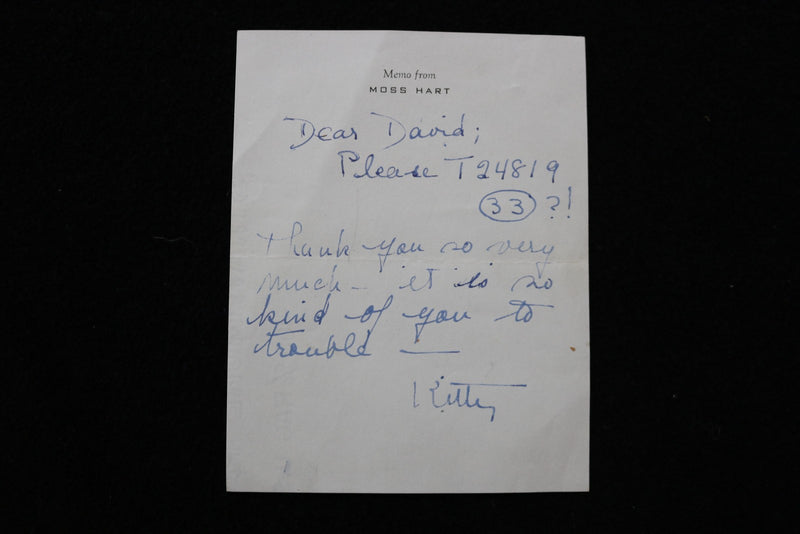 Memo from
MOSS HART
Dear David;
Please T24819
33 ?!
thank you so very
much - it is so
kind of you to
trouble —
Kitty